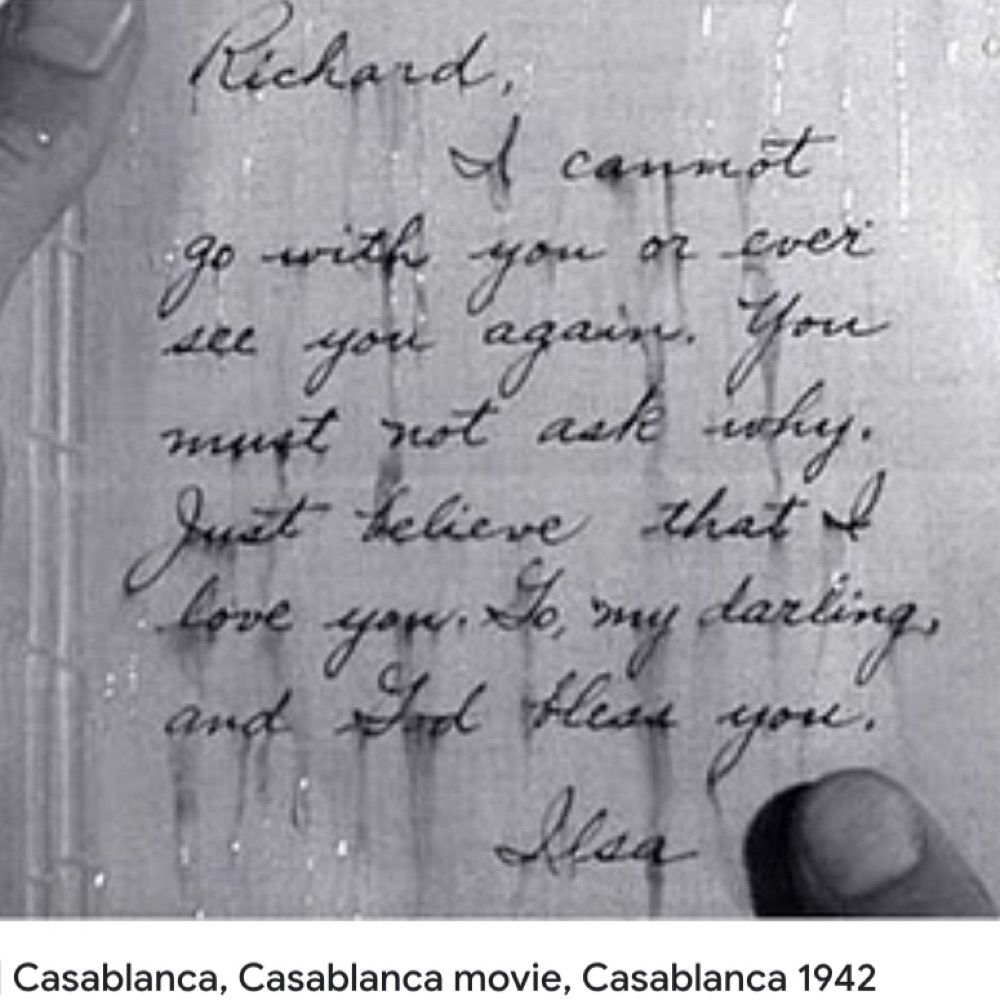 Richard,
I cannot
go with you or ever
see you again. You
must not ask why.
Just believe that I
love you. Go, my darling,
and God bless you.
Ilsa
Casablanca, Casablanca movie, Casablanca 1942